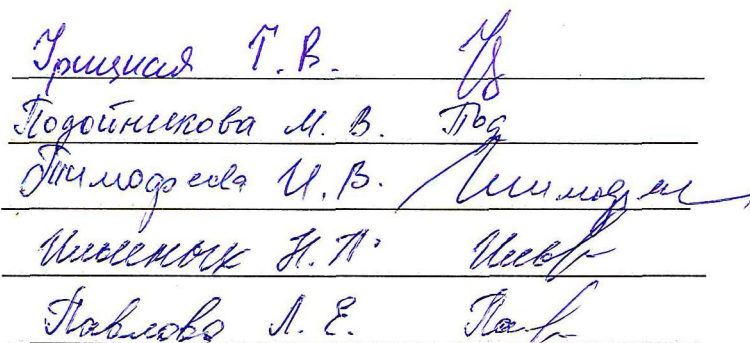 Урицкая Т. В.
Подойникова М. В. Под
Тимофеева И. В. Тимофее
Н. П.
Павлова Л. Е. Пав